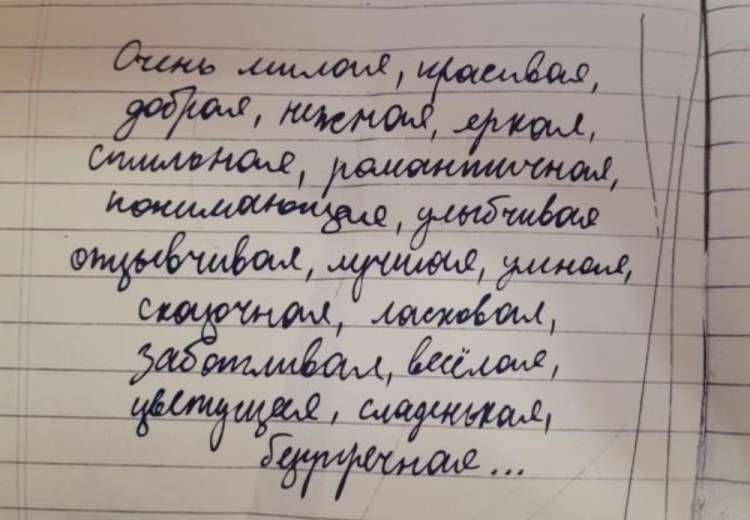 Очень милая, красивая,
добрая, нежная, яркая,
стильная, романтичная,
понимающая, улыбчивая
отзывчивая, лучшая, умная,
сказочная, ласковая,
заботливая, весёлая,
цветущая, сладенькая,
безупречная...